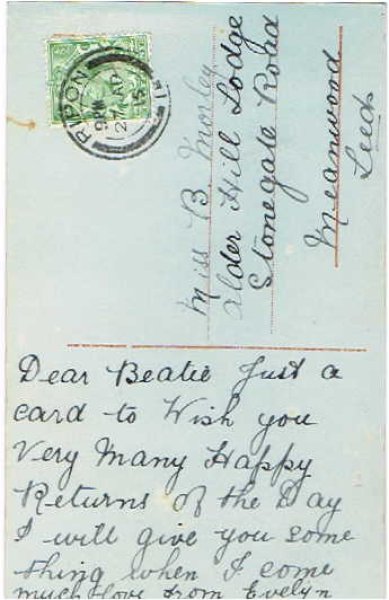 RIPON
9 PM
27 AP
15
Miss B Morley
Alder Hill Lodge
Stonegate Road
Meanwood
Leeds
Dear Beatie Just a
card to Wish you
Very Many Happy
Returns of the Day
I will give you some
thing when I come
much love from Evelyn